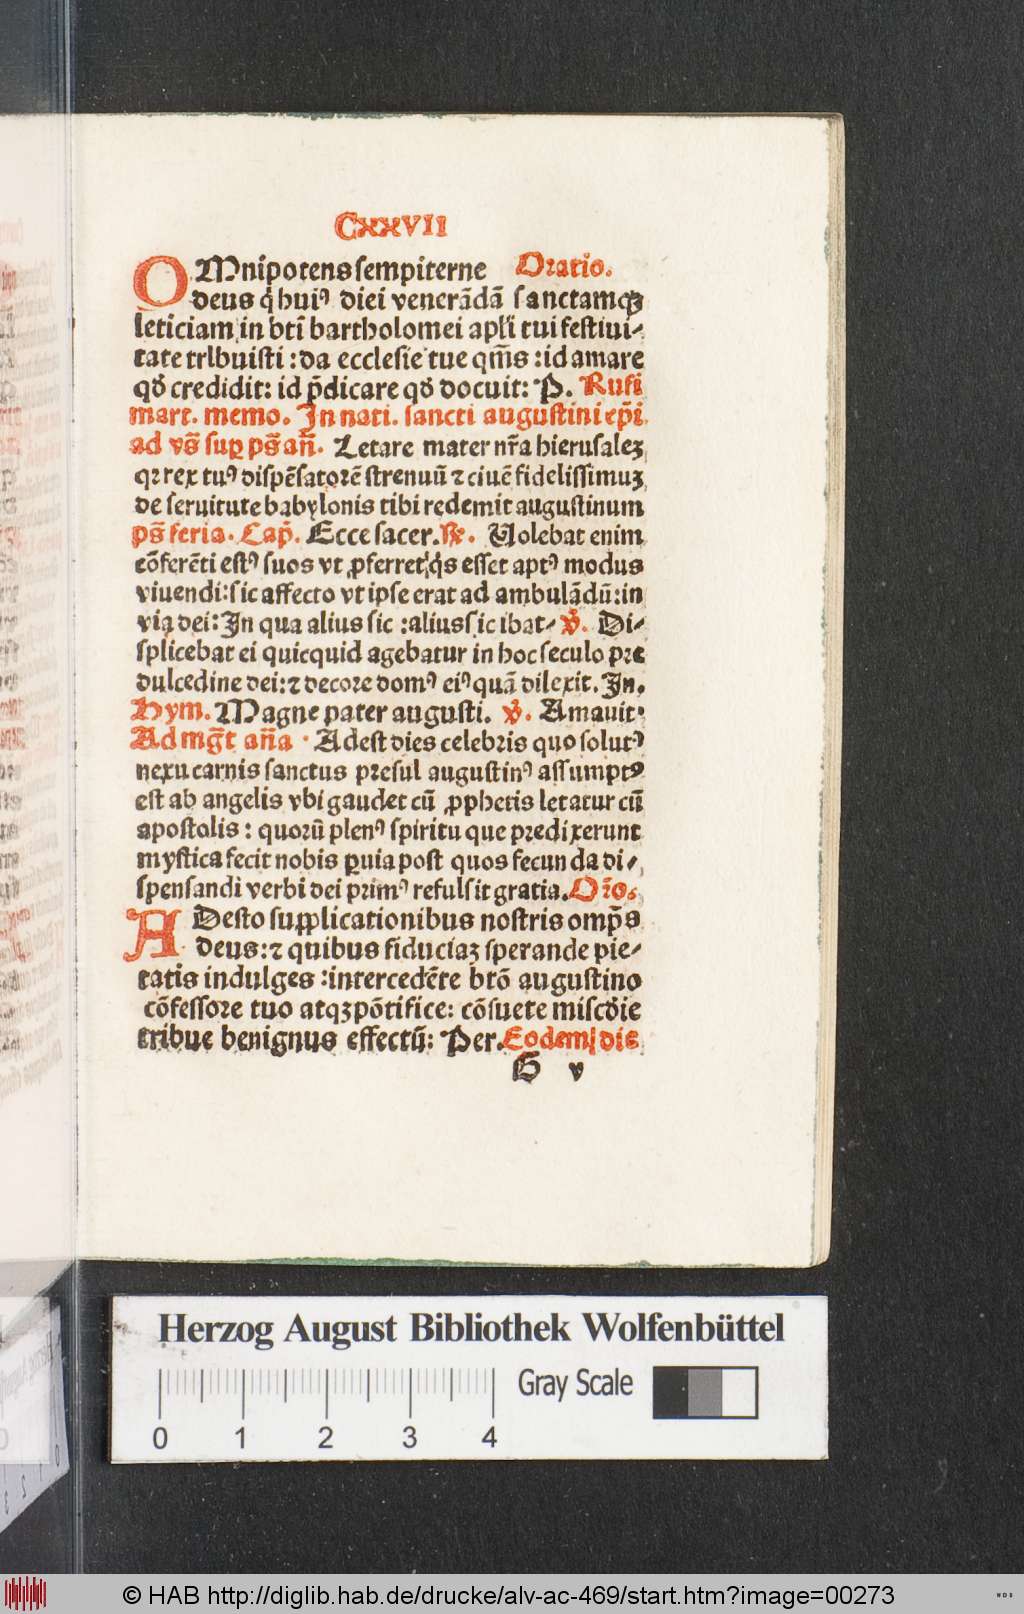 CxxVII
OMnipotens sempiterne Oratio.
deus q̇ huiꝰ diei venerãdã sanctamqꝫ
leticiam in bti̅ bartholomei apl̅i tui festiui⸗
tate trlbuisti : da ecclesie tue qm̅s : id amare
qd̛ credidit: id p̅dicare qd̛ docuit: P. Rufi
mart. memo. In nati. sancti augustini ep̅i
ad vs̅ suꝑ ps̅ an̅. Letare mater nr̅a hierusaleꝫ
qꝛ rex tuꝰ dispẽsatorẽ strenuũ ⁊ ciuẽ fidelissimuꝫ
de seruitute babylonis tibi redemit augustinum
ps̅ feria. Cap̅. Ecce sacer. ℟. Uolebat enim
cõferẽti estꝰ suos vt ꝓferret q̇s esset aptꝰ modus
viuendi: sic affecto vt ipse erat ad ambulãdũ: in
via dei: In qua alius sic : alius sic ibat⸗ ℣. Di⸗
splicebat ei quicquid agebatur in hoc seculo pre
dulcedine dei: ⁊ decore domꝰ eiꝰ quã dilexit. In.
Hym. Magne pater augusti. ℣. Amauit.
Ad mg̅t an̅a . Adest dies celebris quo solutꝰ
nexu carnis sanctus presul augustinꝰ assumptꝰ
est ab angelis vbi gaudet cũ ꝓphetis letatur cũ
apostolis : quorũ plenꝰ spiritu que predixerunt
mystica fecit nobis ꝑuia post quos fecunda di⸗
spensandi verbi dei primꝰ refulsit gratia. Or̅o.
ADesto supplicationibus nostris omp̅s
deus: ⁊ quibus fiduciaꝫ sperande pie⸗
tatis indulges : intercedẽte btõ augustino
cõfessore tuo atqꝫ põtifice: cõsuete miscd̛ie
tribue benignus effectũ: Per. Eodem die
G v
Herzog August Bibliothek Wolfenbüttel
Gray Scale
0 1 2 3 4
© HAB http://diglib.hab.de/drucke/alv-ac-469/start.htm?image=00273